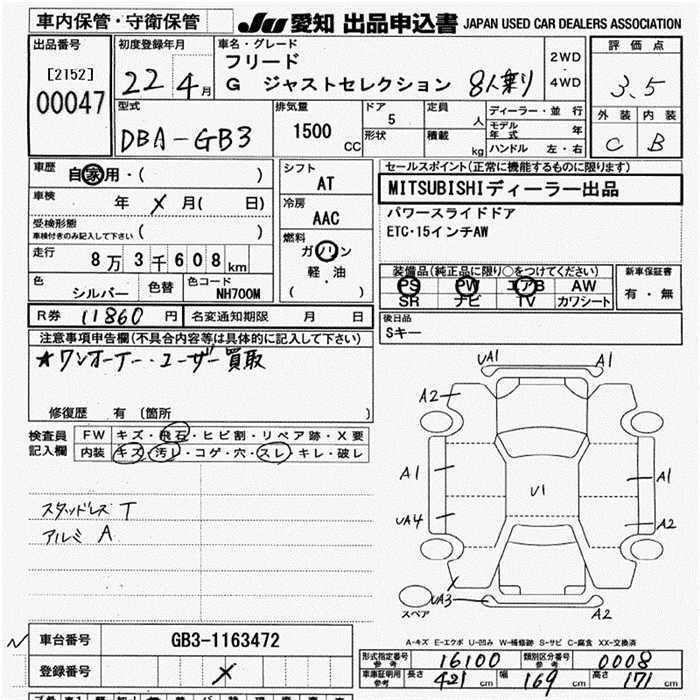 車内保管・守衛保管
JU 愛知 出品申込書 JAPAN USED CAR DEALERS ASSOCIATION
出品番号
[2152]
00047
初度登録年月
22年 4月
車名・グレード
フリード
G ジャストセレクション 8人乗り
2WD
・
4WD
評価点
3.5
外装 内装
C B
型式
DBA-GB3
排気量
1500 CC
ドア
5
形状
定員
人
積載
kg
ディーラー・並行
モデル年式 年
ハンドル 左・右
車歴
自家用・( )
車検
年 メ 月( 日)
受検形態
車検付きのみ記入して下さい ( )
走行
8万3千608km
色
シルバー
色替
色コード
NH700M
シフト
AT
冷房
AAC
燃料
ガソリン
軽・油
( )
セールスポイント(正常に機能するものに限ります)
MITSUBISHIディーラー出品
パワースライドドア
ETC・15インチAW
装備品(純正品に限り○をつけてください)
PS PW エアB AW
SR ナビ TV カワシート
新車保証書
有・無
後日品
Sキー
R券 11860円
名変通知期限 月 日
注意事項申告欄(不具合内容等は具体的に記入して下さい)
★ワンオーナー・ユーザー買取
修復歴 有 〔箇所 〕
検査員
記入欄
FW キズ・飛石・ヒビ割・リペア跡・X要
内装 キズ・汚レ・コゲ・穴・スレ・キレ・破レ
スタッドレス T
アルミ A
UA1 A1
A2 A2
A1 U1 A1
UA4 A2
UA3 A2
スペア
A-キズ E-エクボ U-凹み W-補修跡 S-サビ C-腐食 XX-交換済
車台番号 GB3-1163472
登録番号 メ
形式指定番号
参考
16100
類別区分番号
参考
0008
車庫証明用
参考
長さ 421cm 幅 169cm 高さ 171cm